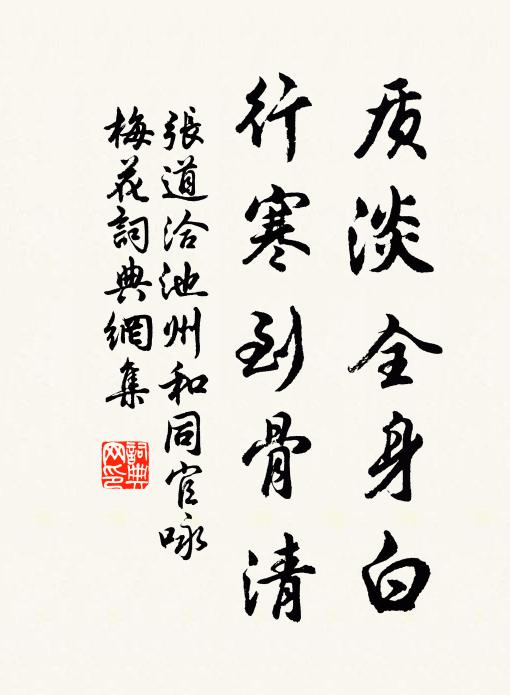 质淡全身白
行寒到骨清
張道洽池州和同官咏
梅花詞典網集
詞典
网印